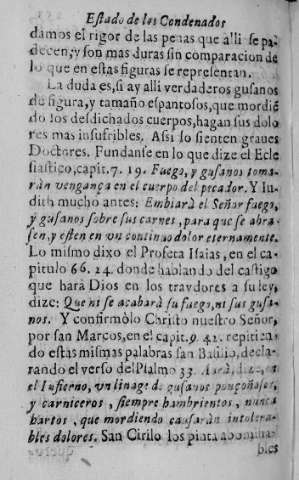 Estado de los Condenados
damos el rigor de las penas que alli se pa-
decen; y son mas duras sin comparacion de
lo que en estas figuras se representan.
La duda es, si ay alli verdaderos gusanos
de figura, y tamaño espantosos, que mordiẽ
do los desdichados cuerpos, hagan sus dolo
res mas insufribles. Assi lo sienten graues
Doctores. Fundanse en lo que dize el Ecle
siastico, capit. 7. 19. Fuego, y gusanos toma-
ràn vengança en el cuerpo del pecador. Y Iu-
dith mucho antes: Embiarà el Señor fuego,
y gusanos sobre sus carnes, para que se abra-
sen, y esten en vn continuo dolor eternamente.
Lo mismo dixo el Profeta Isaias, en el ca-
pitulo 66. 24. donde hablando del castigo
que harà Dios en los traydores a su ley,
dize: Que ni se acabarà su fuego, ni sus gusa-
nos. Y confirmòlo Christo nuestro Señor,
por san Marcos, en el capit. 9. 42. repitien-
do estas mismas palabras san Basilio, decla-
rando el verso del Psalmo 33. Aurà, dize, en
el Infierno, vn linage de gusanos ponçoñosos,
y carniceros, siempre hambrientos, nunca
hartos, que mordiendo causaràn intolera-
bles dolores. San Cirilo los pinta abomina-
bles